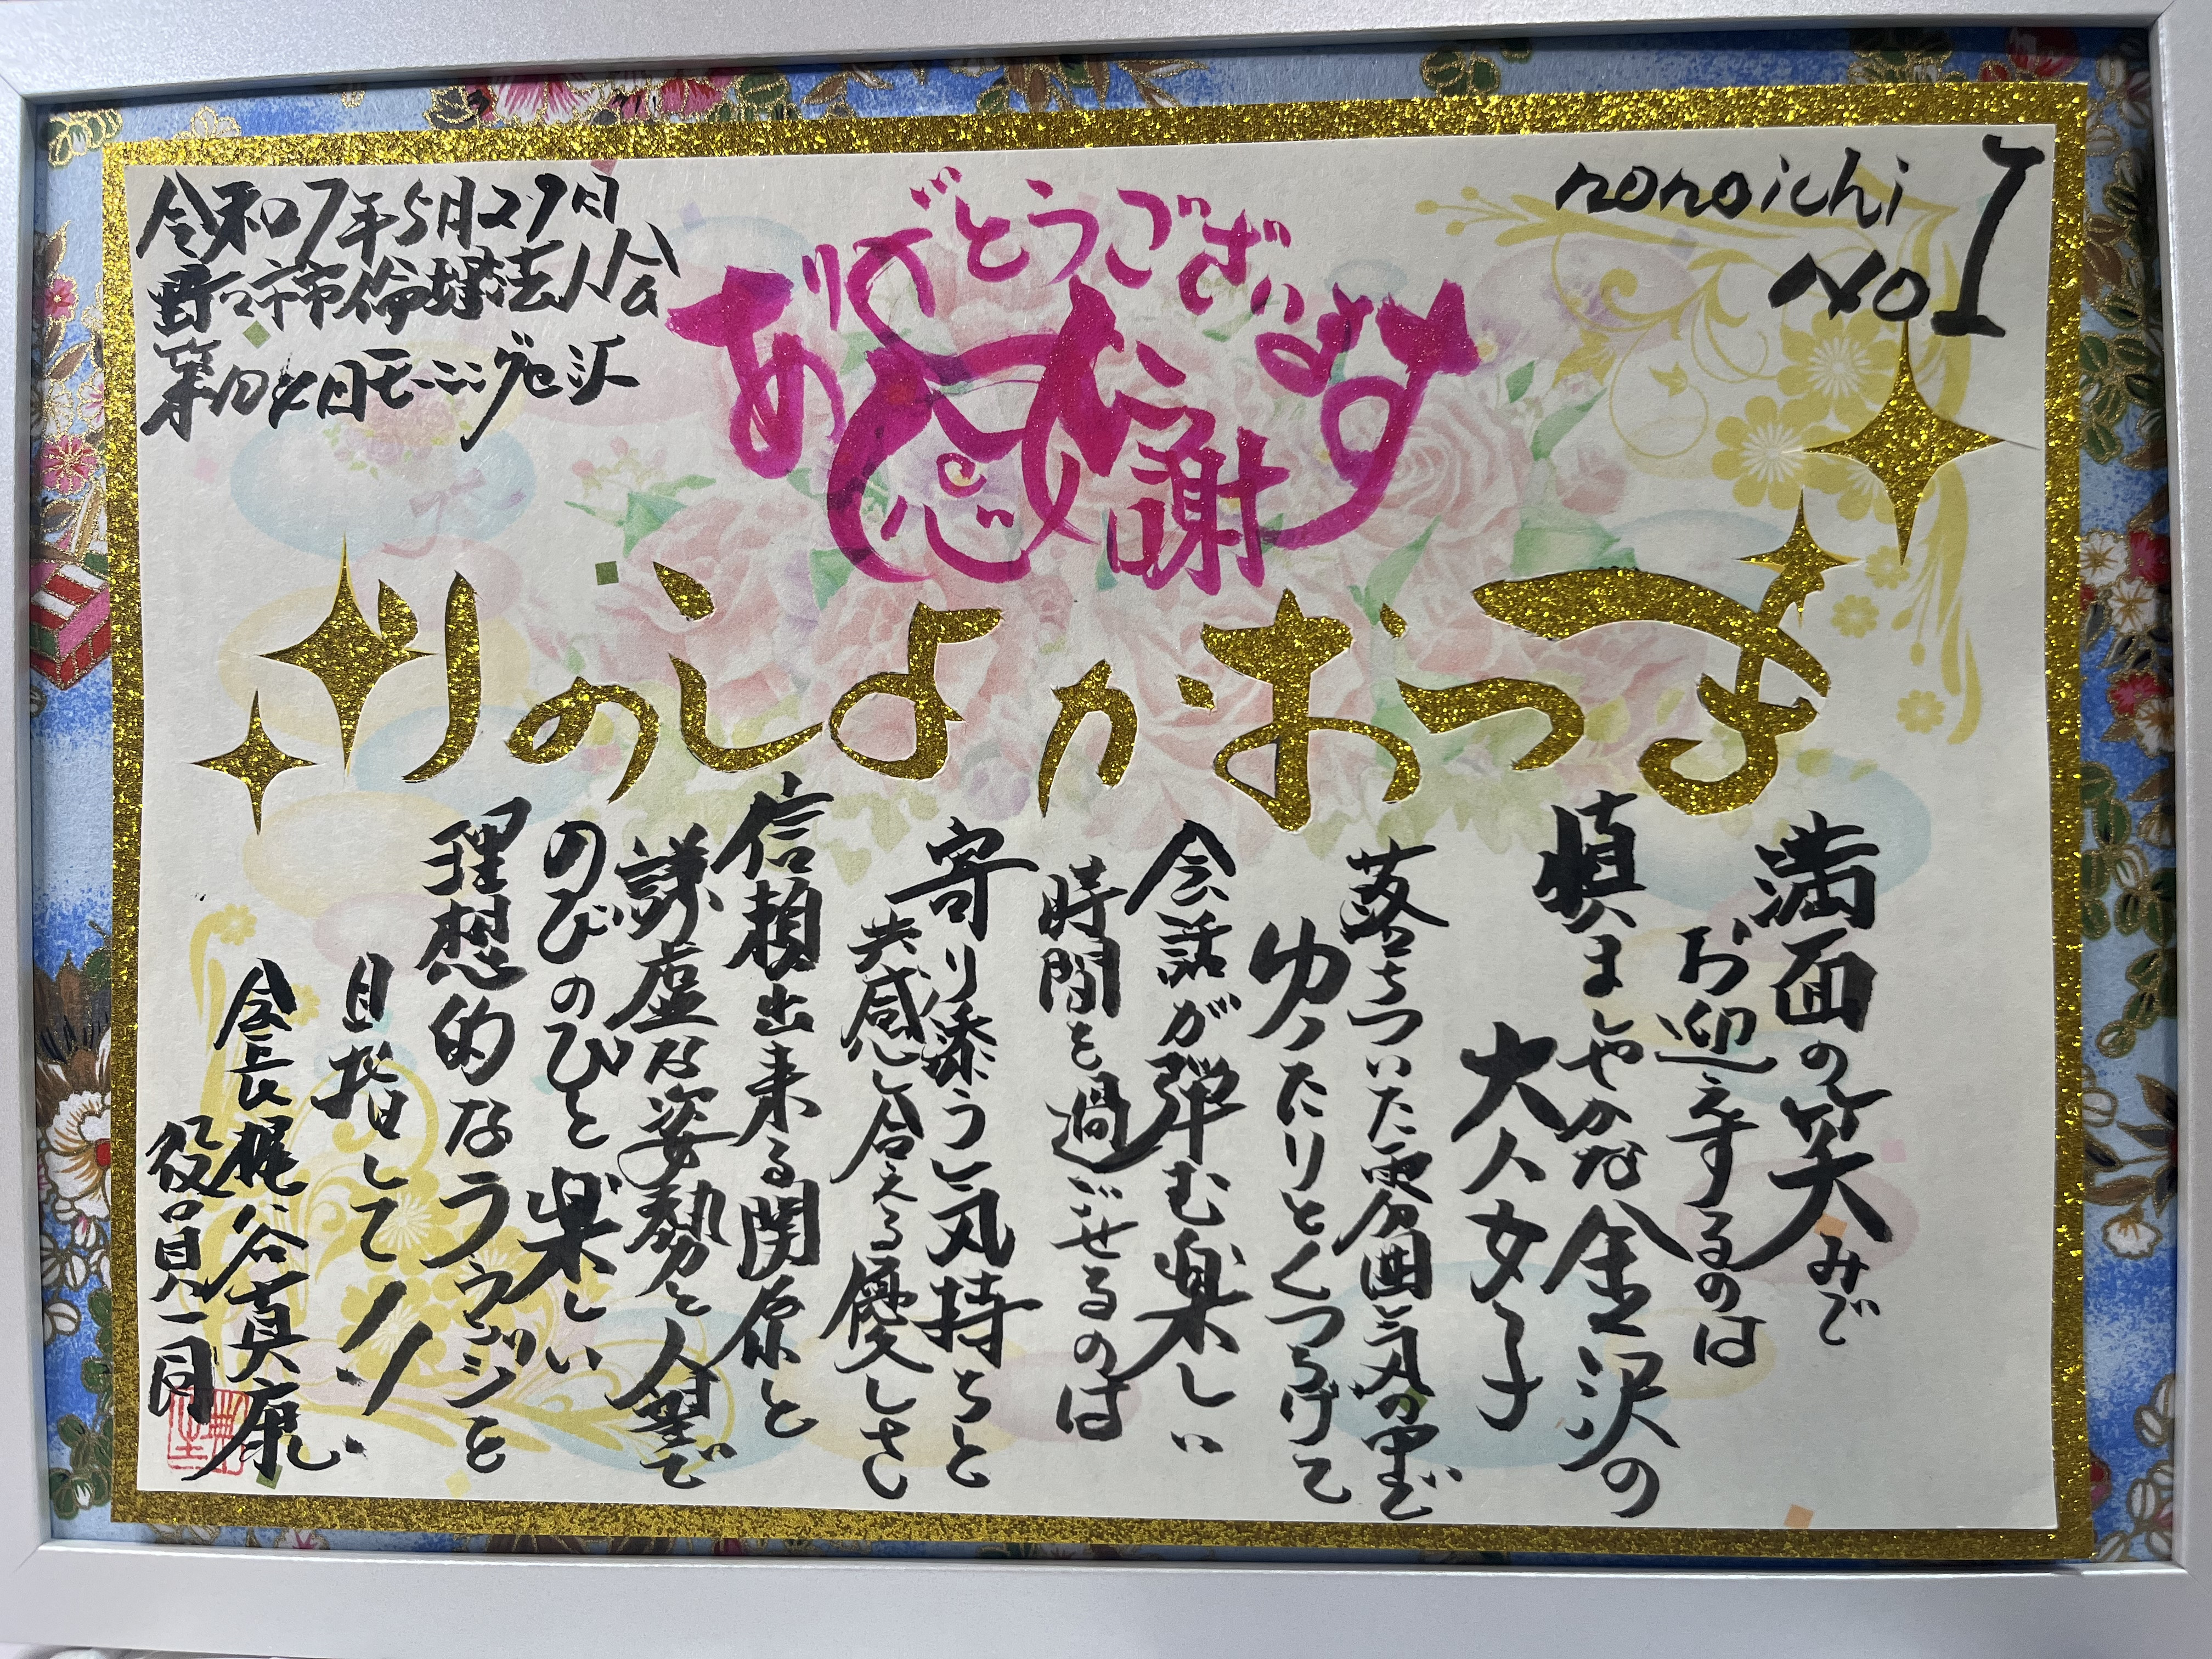 nonoichi
No1
令和7年5月29日
野々市市倫理法人会
ありがとうございます
感謝
まつおかよしのり
満面の笑みで
お迎えするのは
慎ましやかな金沢の
大人女子
落ちついた雰囲気の
ゆったりとくつろげて
会話が弾む楽しい
時間を過ごせるのは
寄り添う気持ちと
共感し合える優しさ
信頼出来る関係と
謙虚な姿勢と人望で
のびのびと楽しい
理想的なラウンジを
目指して!!
会長梶谷真康
役員一同